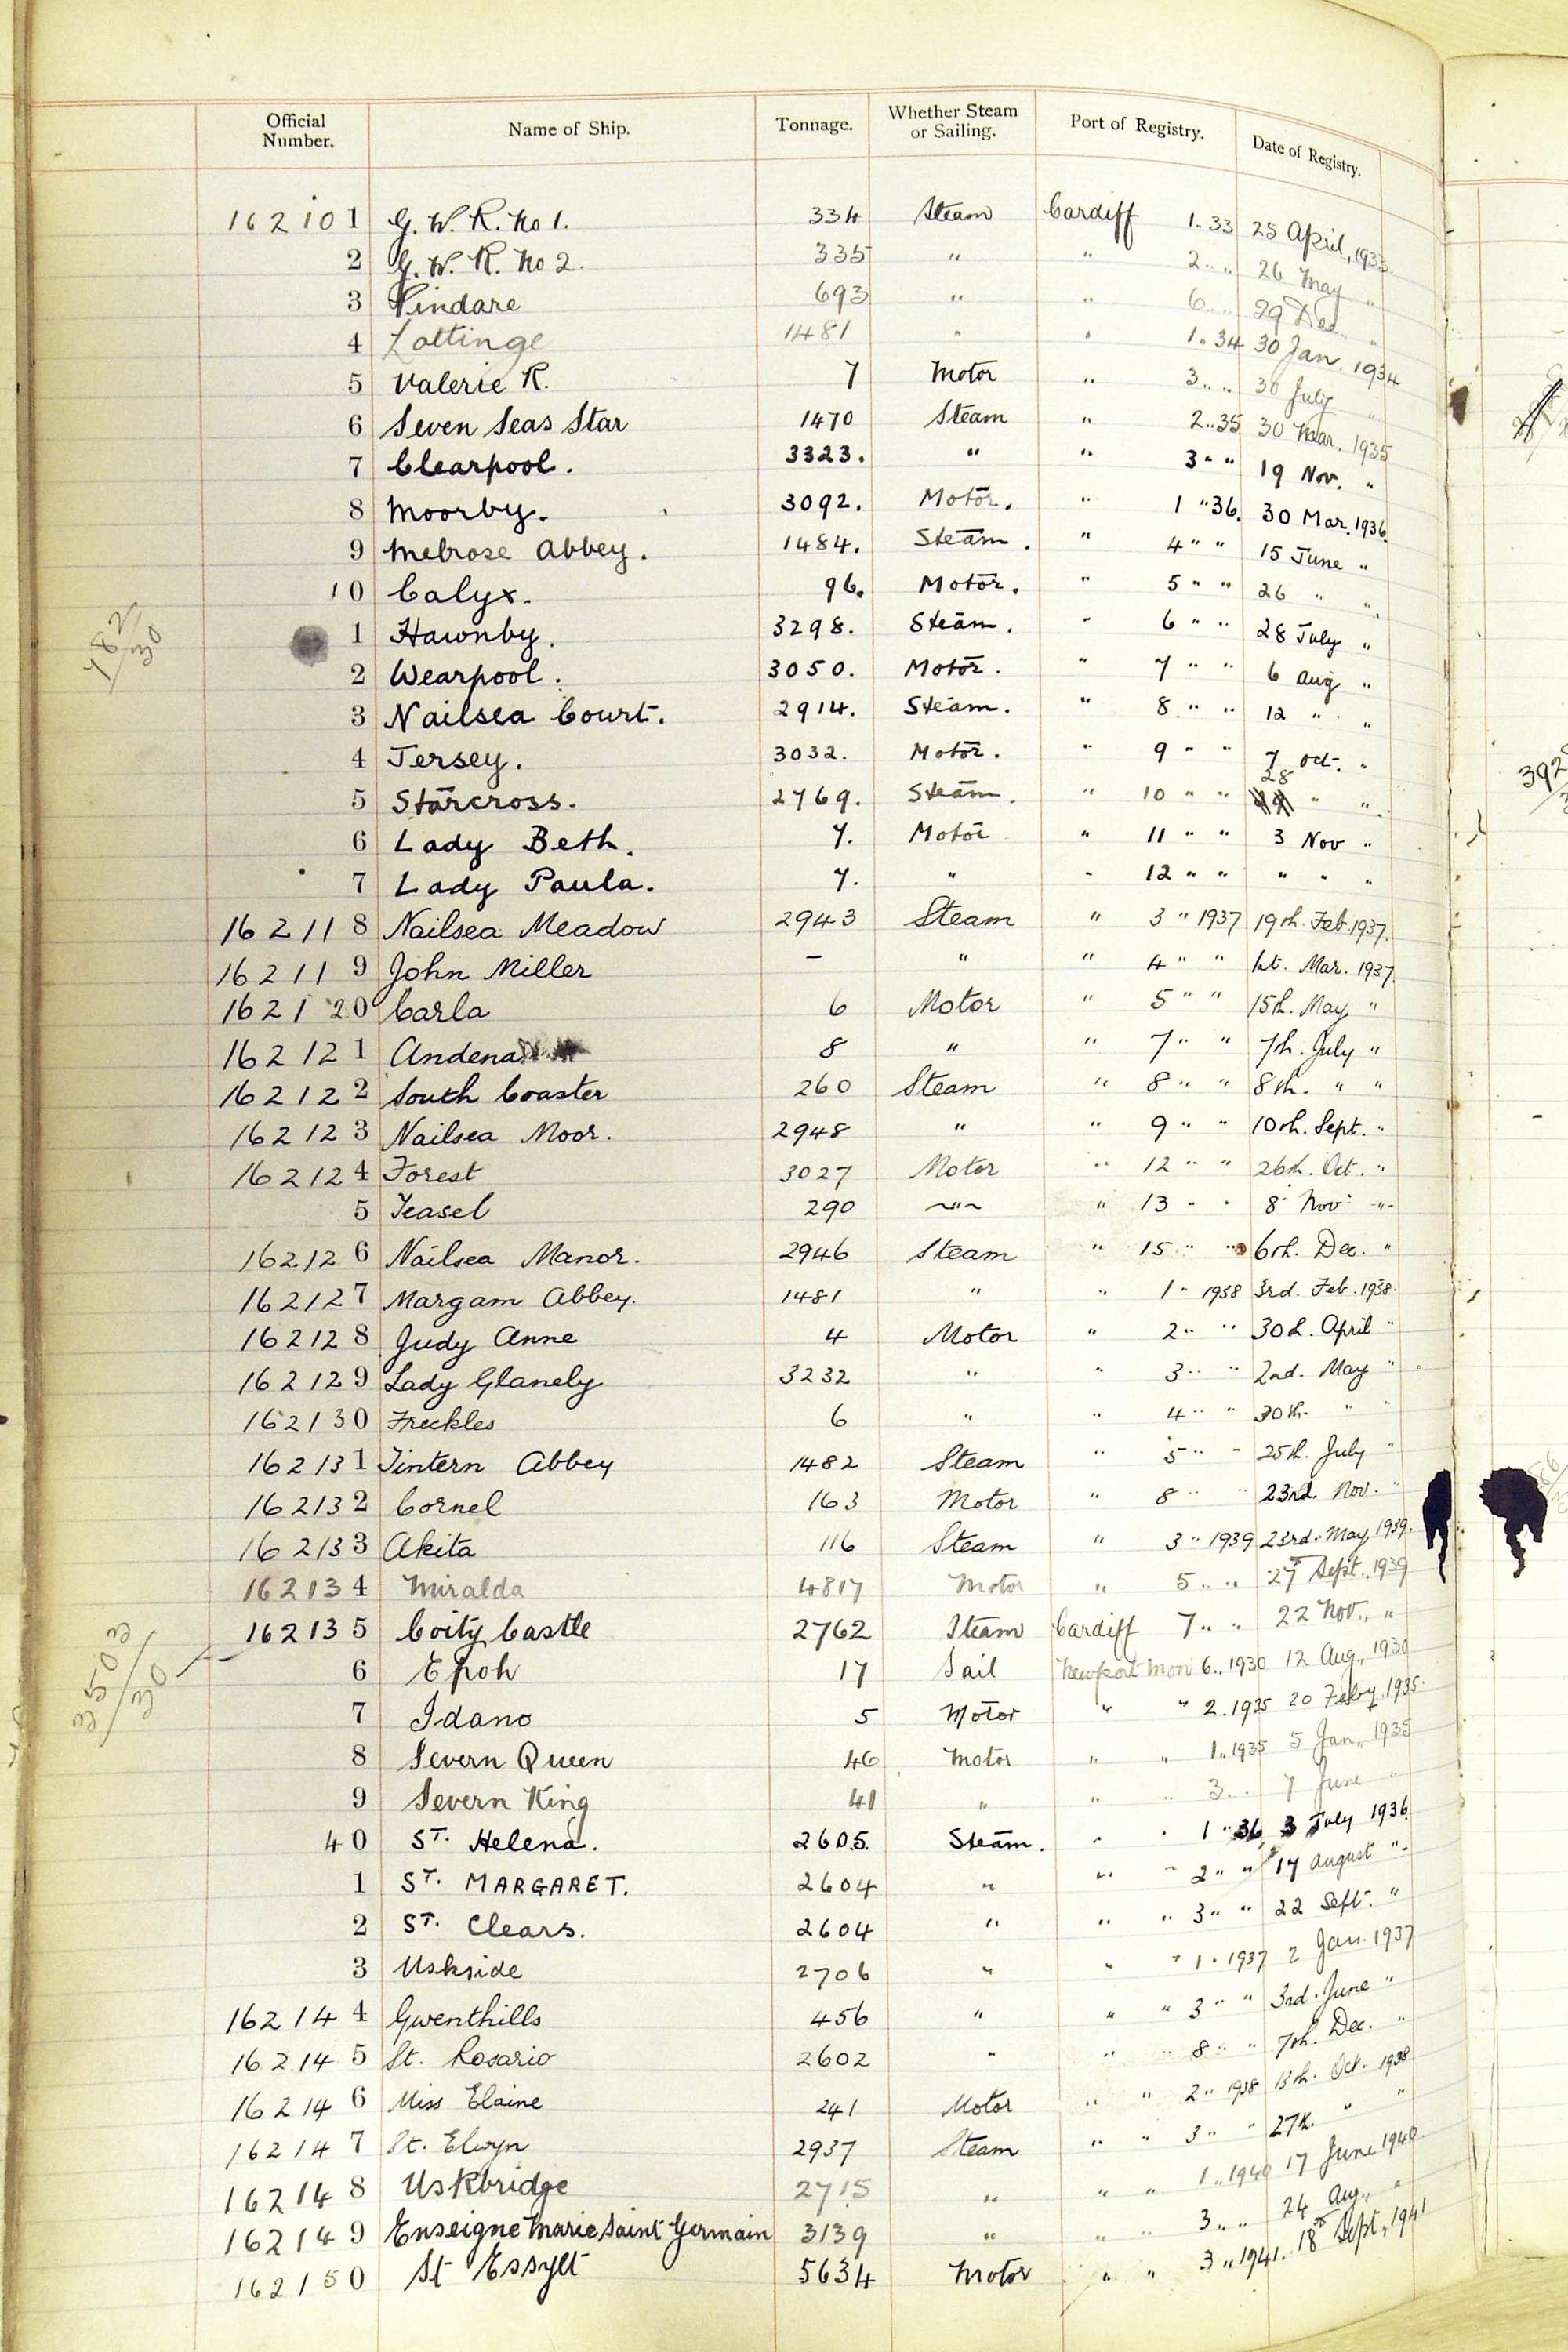 Official Number. Name of Ship. Tonnage. Whether Steam or Sailing. Port of Registry. Date of Registry.
162101 G. W. R. No 1. 334 Steam Cardiff 1..33 25 April, 1933
2 G. W. R. No 2. 335 " " 2.. " 26 May "
3 Pindare 693 " " 6.. 29 Dec. "
4 Lottinge 1481 " " 1..34 30 Jan. 1934
5 Valerie R. 7 Motor " 3.. .. 30 July "
6 Seven Seas Star 1470 Steam " 2..35 30 Mar. 1935
7 Clearpool. 3323. " " 3 " " 19 Nov. "
8 Moorby. 3092. Motor. " 1 "36. 30 Mar. 1936.
9 Melrose Abbey. 1484. Steam. " 4 " " 15 June "
10 Calyx. 96. Motor. " 5 " " 26 " "
1 Hawnby. 3298. Steam. " 6 " " 28 July "
2 Wearpool. 3050. Motor. " 7 " " 6 Aug "
3 Nailsea Court. 2914. Steam. " 8 " " 12 " "
4 Jersey. 3032. Motor. " 9 " " 7 Oct. "
5 Starcross. 2769. Steam. " 10 " " 28 " "
6 Lady Beth. 7. Motor " 11 " " 3 Nov "
7 Lady Paula. 7. " " 12 " " " " "
162118 Nailsea Meadow 2943 Steam " 3 " 1937 19th. Feb. 1937.
162119 John Miller – " " 4 " " 1st. Mar. 1937.
162120 Carla 6 Motor " 5 " " 15th. May "
162121 Andena 8 " " 7 " " 7th. July "
162122 South Coaster 260 Steam " 8 " " 8th. " "
162123 Nailsea Moor. 2948 " " 9 " " 10th. Sept. "
162124 Forest 3027 Motor " 12 " " 26th. Oct. "
5 Teasel 290 –"– " 13 " " 8 Nov: -"-
162126 Nailsea Manor. 2946 Steam " 15 " " 6th. Dec. "
162127 Margam Abbey. 1481 " " 1 " 1938 3rd. Feb. 1938.
162128 Judy Anne 4 Motor " 2 " " 30th. April "
162129 Lady Glanely 3232 " " 3 " " 2nd. May "
162130 Freckles 6 " " 4 " " 30th. " "
162131 Tintern Abbey 1482 Steam " 5 " " 25th. July "
162132 Cornel 163 Motor " 8 " " 23rd. Nov. "
162133 Akita 116 Steam " 3 " 1939 23rd. May 1939.
162134 Miralda 4817 Motor " 5 .. .. 27 Sept., 1939
162135 Coity Castle 2762 Steam Cardiff 7.. .. 22 Nov., "
6 Epoh 17 Sail Newport Mon 6.. 1930 12 Aug., 1930
7 Idano 5 Motor " " 2. 1935 20 Feby. 1935.
8 Severn Queen 46 Motor " " 1.. 1935 5 Jan., 1935
9 Severn King 41 " " " 3.. 7 June "
40 ST. Helena. 2605. Steam. " " 1 " 36 3 July 1936.
1 ST. MARGARET. 2604 " " " 2 " " 17 August "
2 ST. Clears. 2604 " " " 3 " " 22 Sept. "
3 Uskside 2706 " " " 1 " 1937 2 Jan. 1937
162144 Gwenthills 456 " " " 3 " " 3rd. June "
162145 St. Rosario 2602 " " " 8 " " 7th. Dec. "
162146 Miss Elaine 241 Motor " " 2 " 1938 13th. Oct. 1938
162147 St. Elwyn 2937 Steam " " 3 " " 27th. " "
162148 Uskbridge 2715 " " " 1.. 1940 17 June 1940
162149 Enseigne Marie Saint Germain 3139 " " " 3.. .. 24 Aug., "
162150 St Essylt 5634 Motor " " 3 " 1941. 18 Sept, 1941
182/30
3503/30
392